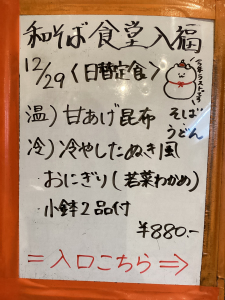 和そば食堂入福
12/29〈日替定食〉
今年ラストです
温)甘あげ昆布 そば
うどん
冷)冷やしたぬき風
・おにぎり(若菜わかめ)
・小鉢2品付
¥880.-
=入口こちら⇒